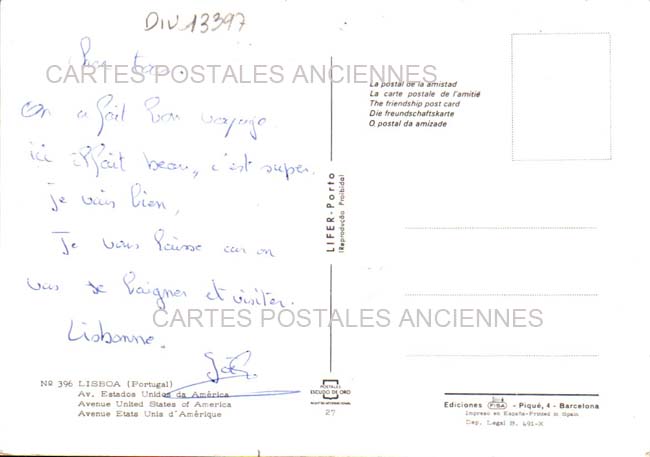 DIV 13397
CARTES POSTALES ANCIENNES
On a fait bon voyage
ici il fait beau, c'est super.
Je vais bien,
Je vous laisse car on
vas se baigner et visiter.
Lisbonne.
CARTES POSTALES ANCIENNES
Joël
No 396 LISBOA (Portugal)
Av. Estados Unidos da América
Avenue United States of America
Avenue Etats Unis d'Amérique
LIFER-Porto
(Reprodução Proibida)
POSTALES
ESCUDO DE ORO
27
La postal de la amistad
La carte postale de l'amitié
The friendship post card
Die freundschaftskarte
O postal da amizade
Ediciones FISA - Piqué, 4 - Barcelona
Impreso en España-Printed in Spain
Dep. Legal B. 491-X